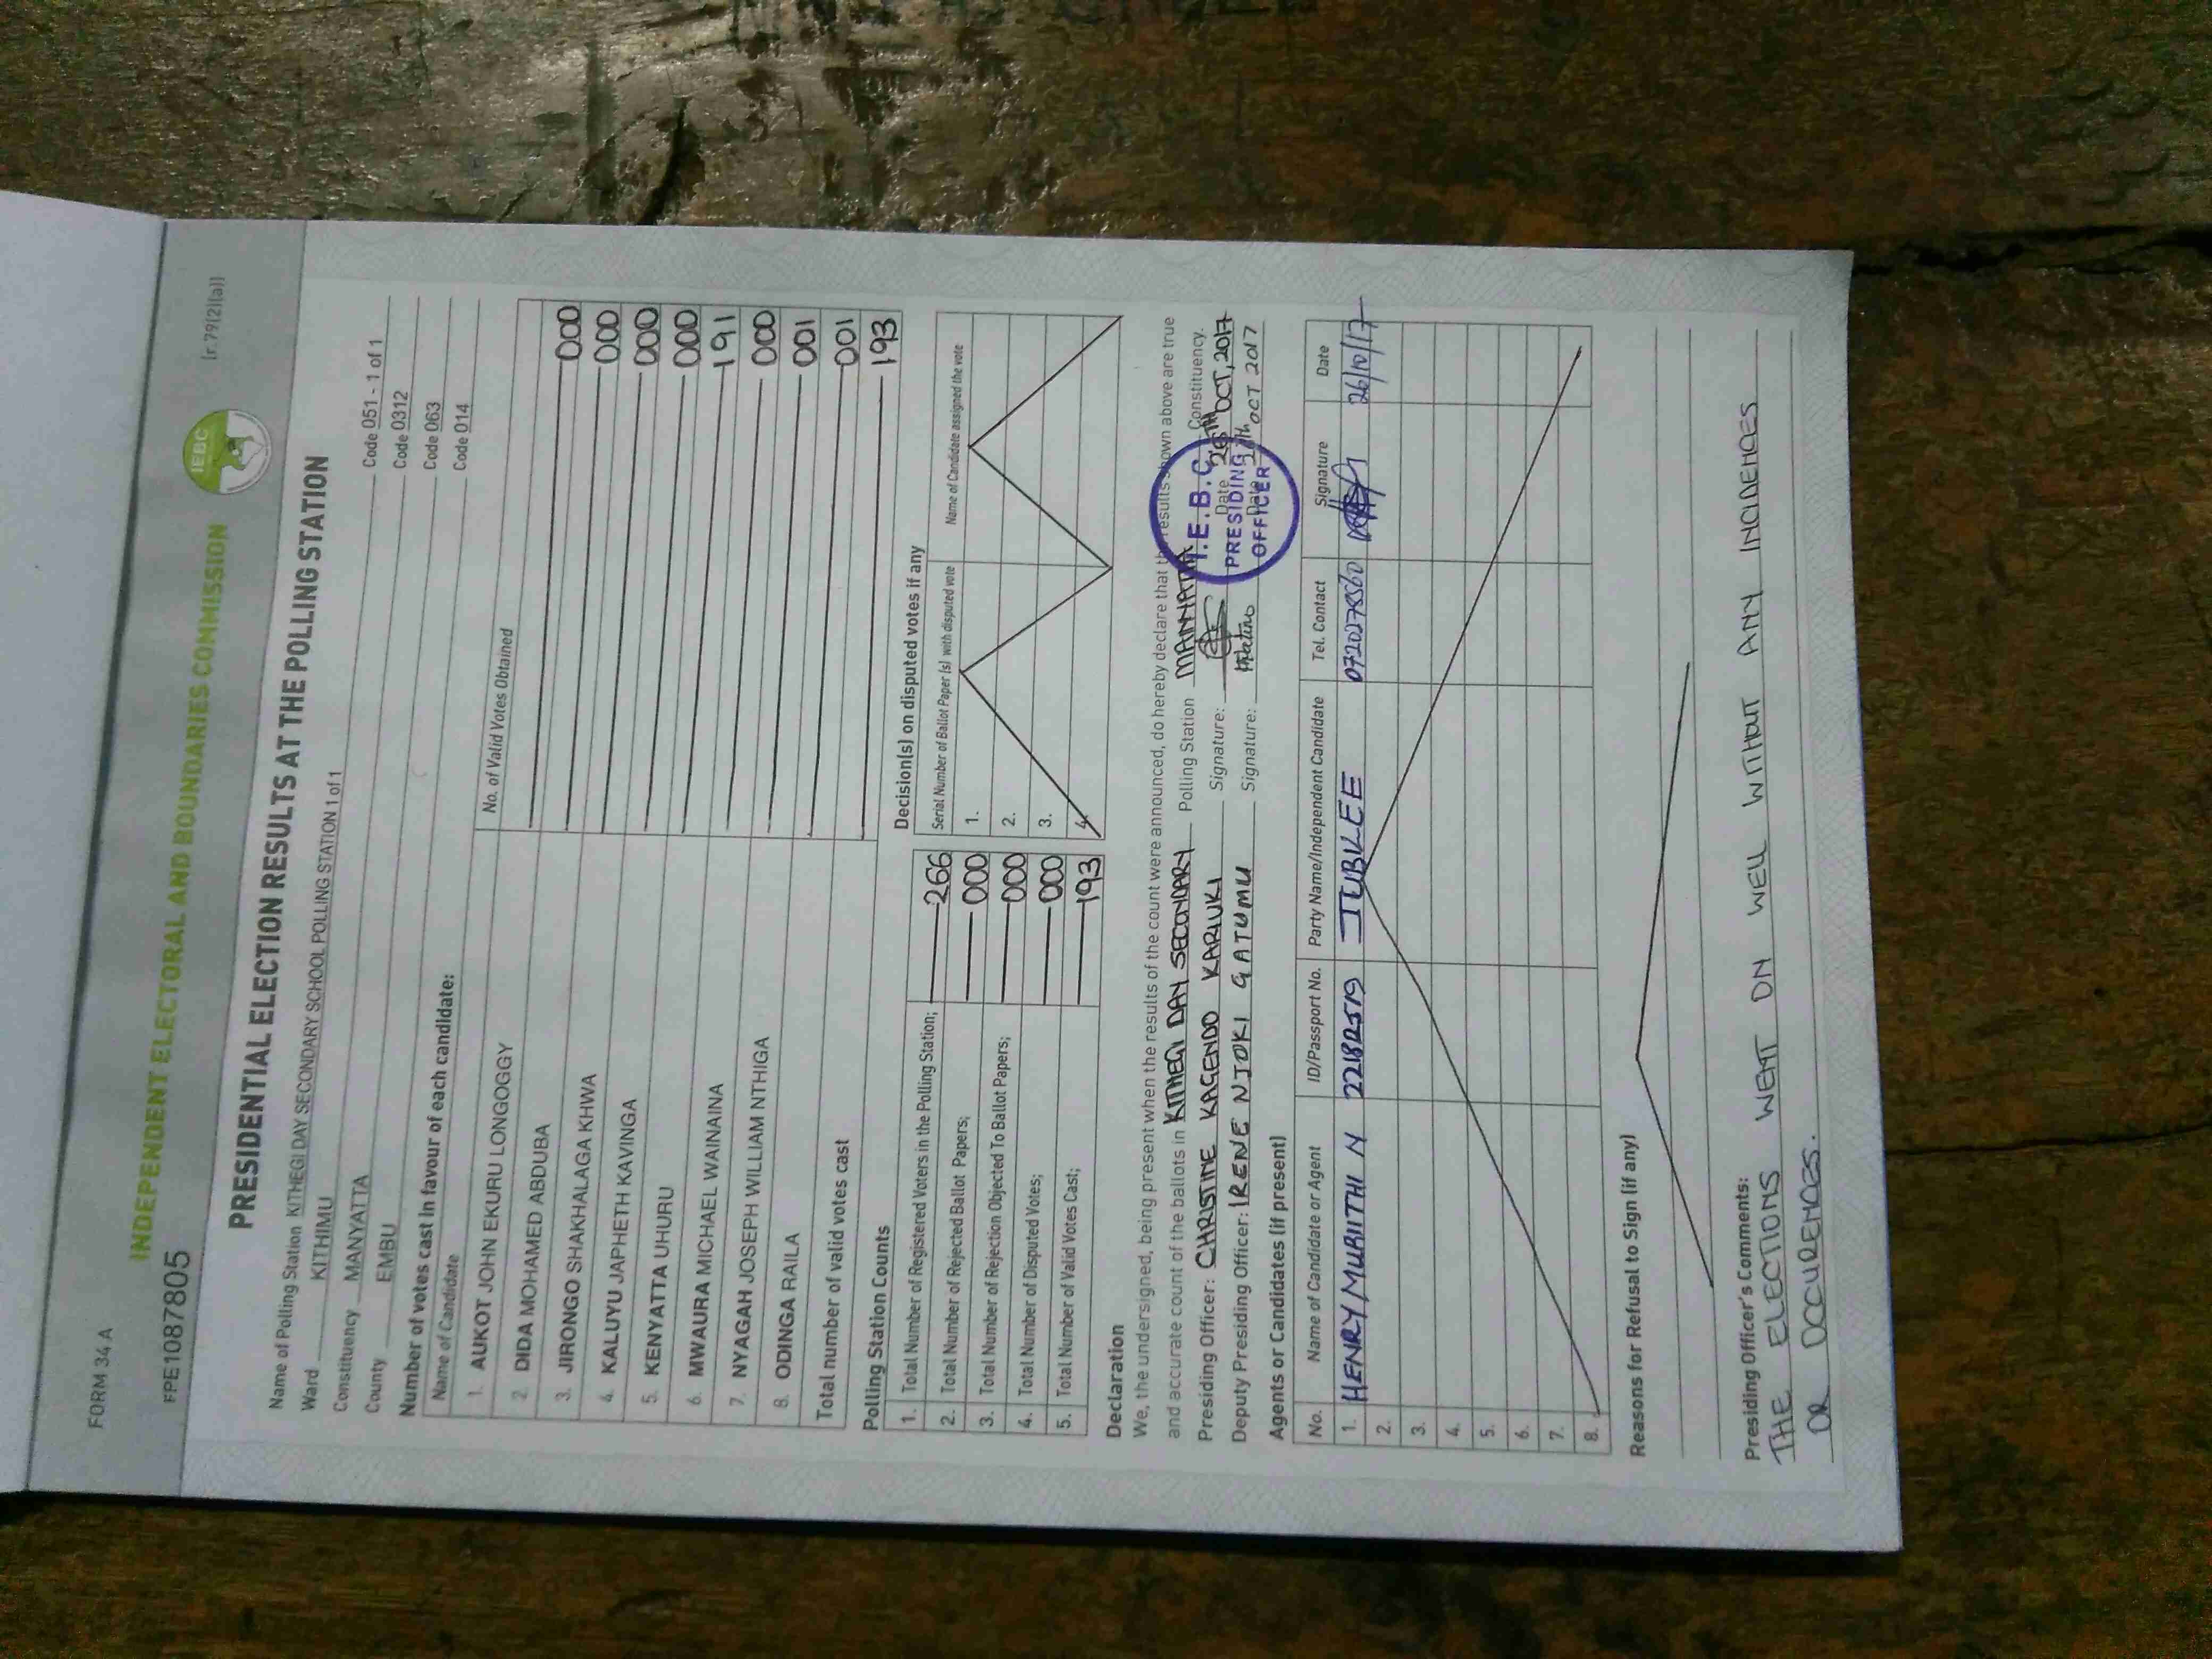 FORM 34 A
INDEPENDENT ELECTORAL AND BOUNDARIES COMMISSION
IEBC
[r.79(2)(a)]
FPE1087805
PRESIDENTIAL ELECTION RESULTS AT THE POLLING STATION
Name of Polling Station KITHEGI DAY SECONDARY SCHOOL POLLING STATION 1 of 1 Code 051 - 1 of 1
Ward KITHIMU Code 0312
Constituency MANYATTA Code 063
County EMBU Code 014
Number of votes cast in favour of each candidate:
Name of Candidate No. of Valid Votes Obtained
1. AUKOT JOHN EKURU LONGOGGY 000
2. DIDA MOHAMED ABDUBA 000
3. JIRONGO SHAKHALAGA KHWA 000
4. KALUYU JAPHETH KAVINGA 000
5. KENYATTA UHURU 191
6. MWAURA MICHAEL WAINAINA 000
7. NYAGAH JOSEPH WILLIAM NTHIGA 001
8. ODINGA RAILA 001
Total number of valid votes cast 193
Polling Station Counts
1. Total Number of Registered Voters in the Polling Station; 266
2. Total Number of Rejected Ballot Papers; 000
3. Total Number of Rejection Objected To Ballot Papers; 000
4. Total Number of Disputed Votes; 000
5. Total Number of Valid Votes Cast; 193
Decision(s) on disputed votes if any
Serial Number of Ballot Paper (s) with disputed vote Name of Candidate assigned the vote
1.
2.
3.
4.
Declaration
We, the undersigned, being present when the results of the count were announced, do hereby declare that the results shown above are true
and accurate count of the ballots in KITHEGI DAY SECONDARY Polling Station MANYATTA Constituency.
Presiding Officer: CHRISTINE KAGENDO KARIUKI Signature: Date 26TH OCT, 2017
Deputy Presiding Officer: IRENE NJOKI GATUMU Signature: Date 26th OCT 2017
I.E.B.C.
PRESIDING
OFFICER
Agents or Candidates (if present)
No. Name of Candidate or Agent ID/Passport No. Party Name/Independent Candidate Tel. Contact Signature Date
1. HENRY MURIITHI N 22182519 JUBILEE 0720278560 26/10/17
2.
3.
4.
5.
6.
7.
8.
Reasons for Refusal to Sign (if any)
Presiding Officer's Comments:
THE ELECTIONS WENT ON WELL WITHOUT ANY INCIDENCES
OR OCCURENCES.